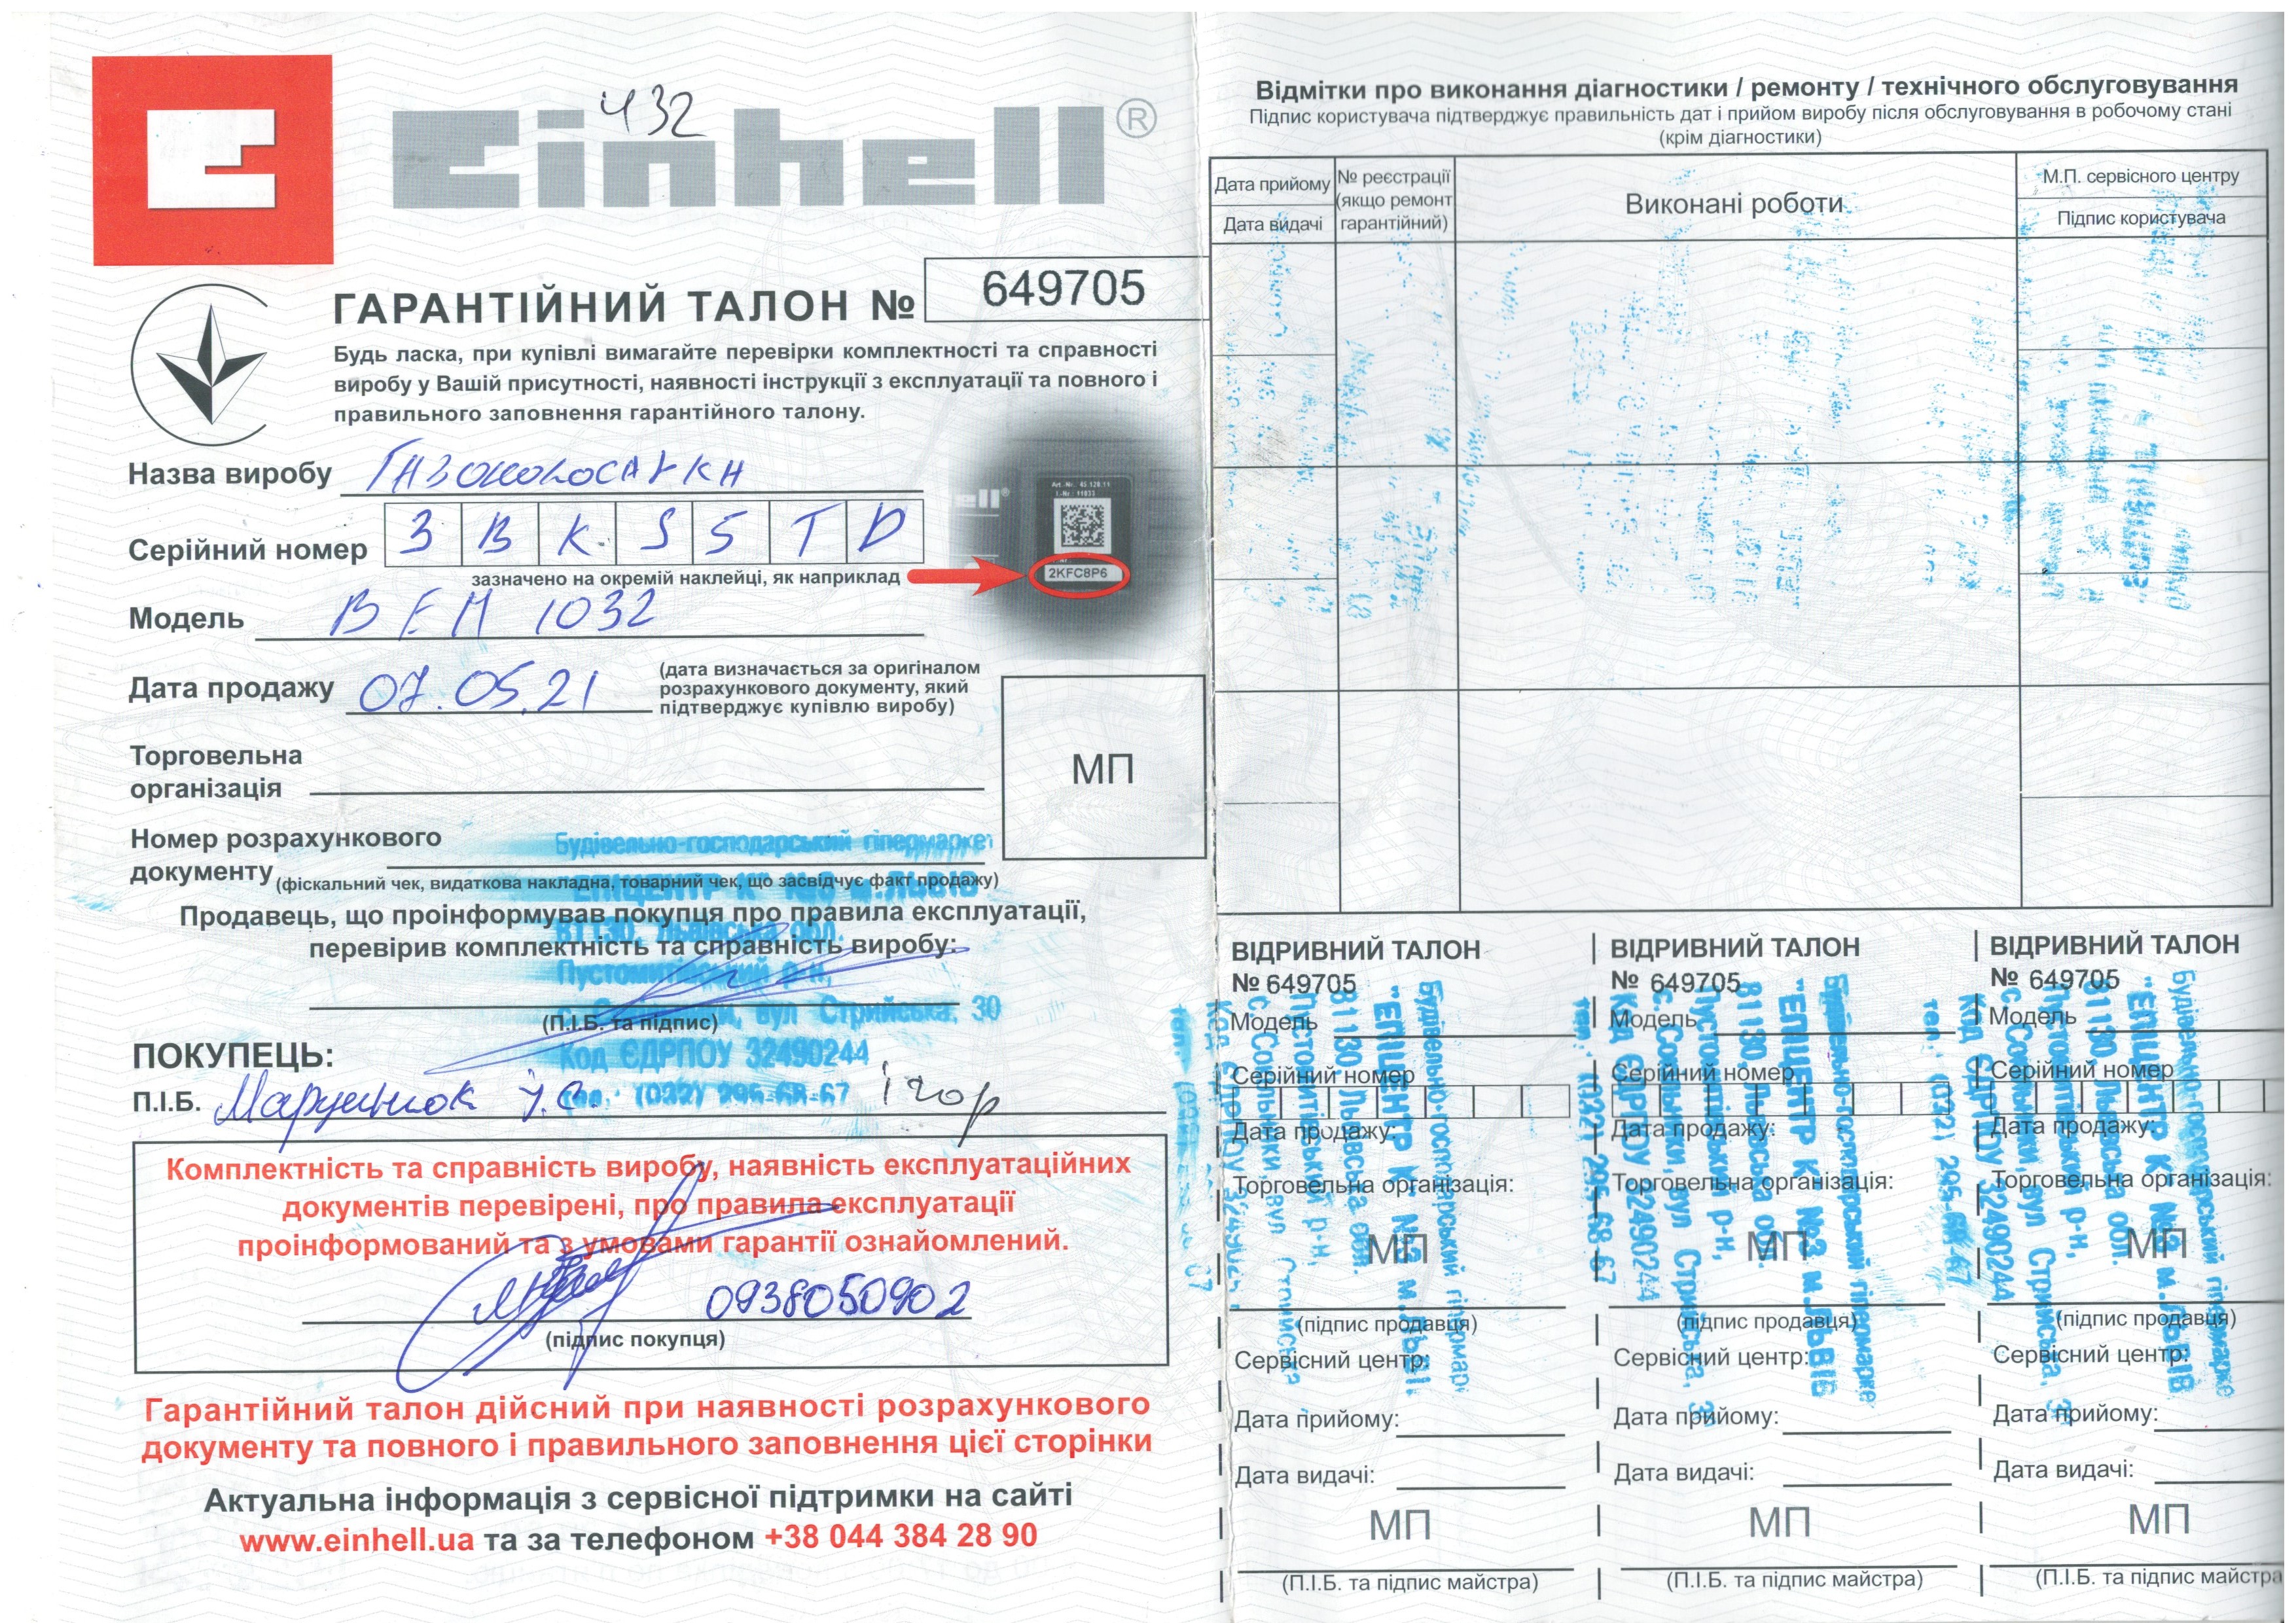 Einhell®
432
ГАРАНТІЙНИЙ ТАЛОН № 649705
Будь ласка, при купівлі вимагайте перевірки комплектності та справності
виробу у Вашій присутності, наявності інструкції з експлуатації та повного і
правильного заповнення гарантійного талону.
Назва виробу
Серійний номер 3 B K S 5 T D
зазначено на окремій наклейці, як наприклад
2KFC8P6
Модель 1032
Дата продажу 07.05.21
(дата визначається за оригіналом
розрахункового документу, який
підтверджує купівлю виробу)
Торговельна
організація
МП
Номер розрахункового
документу
(фіскальний чек, видаткова накладна, товарний чек, що засвідчує факт продажу)
Продавець, що проінформував покупця про правила експлуатації,
перевірив комплектність та справність виробу:
(П.І.Б. та підпис)
Будівельно-господарський гіпермаркет
"ЕПІЦЕНТР К" м.ЛЬВІВ
81130, Львівська обл.
Пустомитівський р-н,
вул Стрийська, 30
Код ЄДРПОУ 32490244
тел.: (032) 295-68-67
ПОКУПЕЦЬ:
П.І.Б. Ігор
Комплектність та справність виробу, наявність експлуатаційних
документів перевірені, про правила експлуатації
проінформований та з умовами гарантії ознайомлений.
0938050902
(підпис покупця)
Гарантійний талон дійсний при наявності розрахункового
документу та повного і правильного заповнення цієї сторінки
Актуальна інформація з сервісної підтримки на сайті
www.einhell.ua та за телефоном +38 044 384 28 90
Відмітки про виконання діагностики / ремонту / технічного обслуговування
Підпис користувача підтверджує правильність дат і прийом виробу після обслуговування в робочому стані
(крім діагностики)
Дата прийому
Дата видачі
№ реєстрації
(якщо ремонт
гарантійний)
Виконані роботи
М.П. сервісного центру
Підпис користувача
ВІДРИВНИЙ ТАЛОН
№ 649705
Модель
Серійний номер
Дата продажу:
Торговельна організація:
МП
(підпис продавця)
Сервісний центр:
Дата прийому:
Дата видачі:
МП
(П.І.Б. та підпис майстра)
Будівельно-господарський гіпермарк
"ЕПІЦЕНТР К" №2 м.ЛЬВІВ
81130 Львівська обл.
Пустомитівський р-н,
с. Сокільники, вул Стрийська
ВІДРИВНИЙ ТАЛОН
№ 649705
Модель
Серійний номер
Дата продажу:
Торговельна організація:
МП
(підпис продавця)
Сервісний центр:
Дата прийому:
Дата видачі:
МП
(П.І.Б. та підпис майстра)
Будівельно-господарський гіпермарке
"ЕПІЦЕНТР К" №2 м.ЛЬВІВ
81130 Львівська обл.
Пустомитівський р-н,
с. Сокільники, вул Стрийська, 3
Код ЄДРПОУ 32490244
тел.: (032) 295-68-67
ВІДРИВНИЙ ТАЛОН
№ 649705
Модель
Серійний номер
Дата продажу:
Торговельна організація:
МП
(підпис продавця)
Сервісний центр:
Дата прийому:
Дата видачі:
МП
(П.І.Б. та підпис майстра
Будівельно-господарський гіпермарке
"ЕПІЦЕНТР К" №2 м.ЛЬВІВ
81130 Львівська обл.
Пустомитівський р-н,
с. Сокільники, вул Стрийська, 3
Код ЄДРПОУ 32490244
тел.: (032) 295-68-67